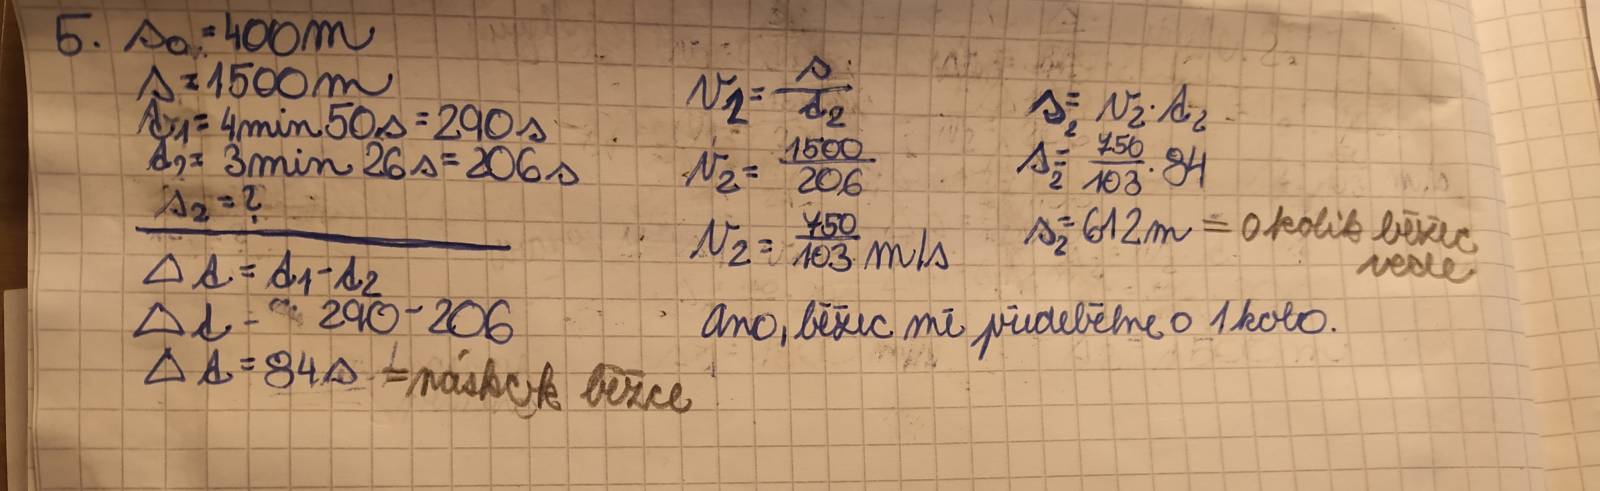 5. s₀ = 400m
s = 1500m
t₁ = 4min 50s = 290s
t₂ = 3min 26s = 206s
s₂ = ?
Δt = t₁ - t₂
Δt - 290 - 206
Δt = 84s = náskok běžce
v₂ = s/t₂
v₂ = 1500/206
v₂ = 750/103 m/s
s₂ = v₂ · t₂
s₂ = 750/103 · 84
s₂ = 612m = o kolik běžec
vede
Ano, běžec mě předeběhne o 1 kolo.